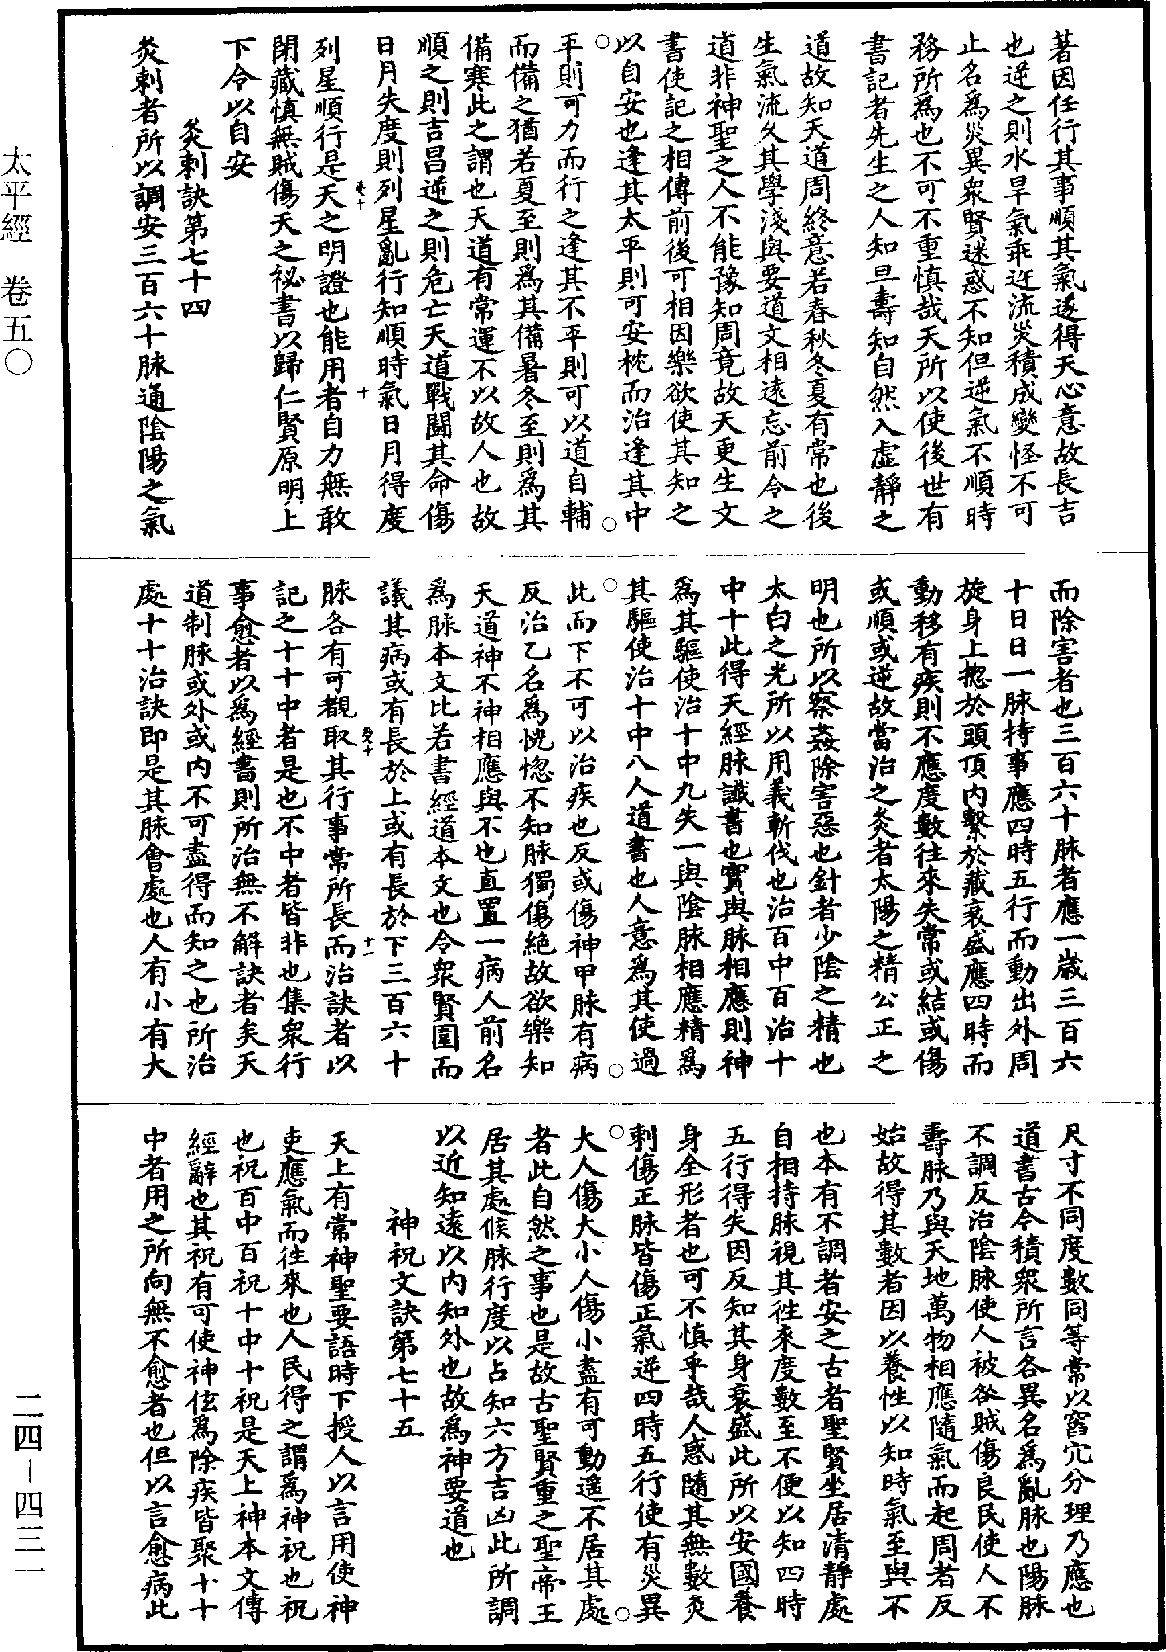 著因任行其事順其氣遂得天心意故長吉
也逆之則水旱氣乖迕流災積成變怪不可
止名為災異眾賢迷惑不知但逆氣不順時
務所為也不可不重慎哉天所以使後世有
書記者先生之人知旦壽知自然入虛靜之
道故知天道周終意若春秋冬夏有常也後
生氣流久其學淺與要道文相遠忘前令之
道非神聖之人不能豫知周竟故天更生文
書使記之相傳前後可相因樂欲使其知之
以自安也逢其太平則可安枕而治逢其中
平則可力而行之逢其不平則可以道自輔
而備之猶若夏至則為其備暑冬至則為其
備寒此之謂也天道有常運不以故人也故
順之則吉昌逆之則危亡天道戰鬪其命傷
日月失度則列星亂行知順時氣日月得度
列星順行是天之明證也能用者自力無敢
閉藏慎無賊傷天之祕書以歸仁賢原明上
下令以自安
灸刺訣第七十四
灸刺者所以調安三百六十脉通陰陽之氣
而除害者也三百六十脉者應一歲三百六
十日日一脉持事應四時五行而動出外周
旋身上揔於頭頂內繫於藏衰盛應四時而
動移有疾則不應度數往來失常或結或傷
或順或逆故當治之灸者太陽之精公正之
明也所以察姦除害惡也針者少陰之精也
太白之光所以用義斬伐也治百中百治十
中十此得天經脉讖書也實與脉相應則神
為其驅使治十中九失一與陰脉相應精為
其驅使治十中八人道書也人意為其使過
此而下不可以治疾也反或傷神甲脉有病
反治乙名為恍惚不知脉獨傷絕故欲樂知
天道神不神相應與不也直置一病人前名
為脉本文比若書經道本文也令眾賢圍而
議其病或有長於上或有長於下三百六十
脉各有可覩取其行事常所長而治訣者以
記之十十中者是也不中者皆非也集眾行
事愈者以為經書則所治無不解訣者矣天
道制脉或外或內不可盡得而知之也所治
處十十治訣即是其脉會處也人有小有大
尺寸不同度數同等常以窞穴分理乃應也
道書古今積眾所言各異名為亂脉也陽脉
不調反治陰脉使人被咎賊傷良民使人不
壽脉乃與天地萬物相應隨氣而起周者反
始故得其數者因以養性以知時氣至與不
也本有不調者安之古者聖賢坐居清靜處
自相持脉視其徃來度數至不便以知四時
五行得失因反知其身衰盛此所以安國養
身全形者也可不慎乎哉人惑隨其無數灸
刺傷正脉皆傷正氣逆四時五行使有災異
大人傷大小人傷小盡有可動遥不居其處
者此自然之事也是故古聖賢重之聖帝王
居其處候脉行度以占知六方吉凶此所謂
以近知遠以內知外也故為神要道也
神祝文訣第七十五
天上有常神聖要語時下授人以言用使神
吏應氣而徃來也人民得之謂為神祝也祝
也祝百中百祝十中十祝是天上神本文傳
經辭也其祝有可使神伭為除疾皆聚十十
中者用之所向無不愈者也但以言愈病此
太平經 卷五〇
二四－四三一